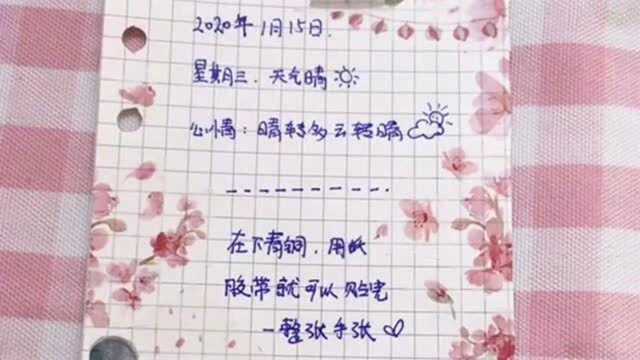 2020年1月15日.
星期三. 天气晴
心情: 晴转多云转晴
----------.
在下青铜. 用纸
胶带就可以贴完
一整张手张